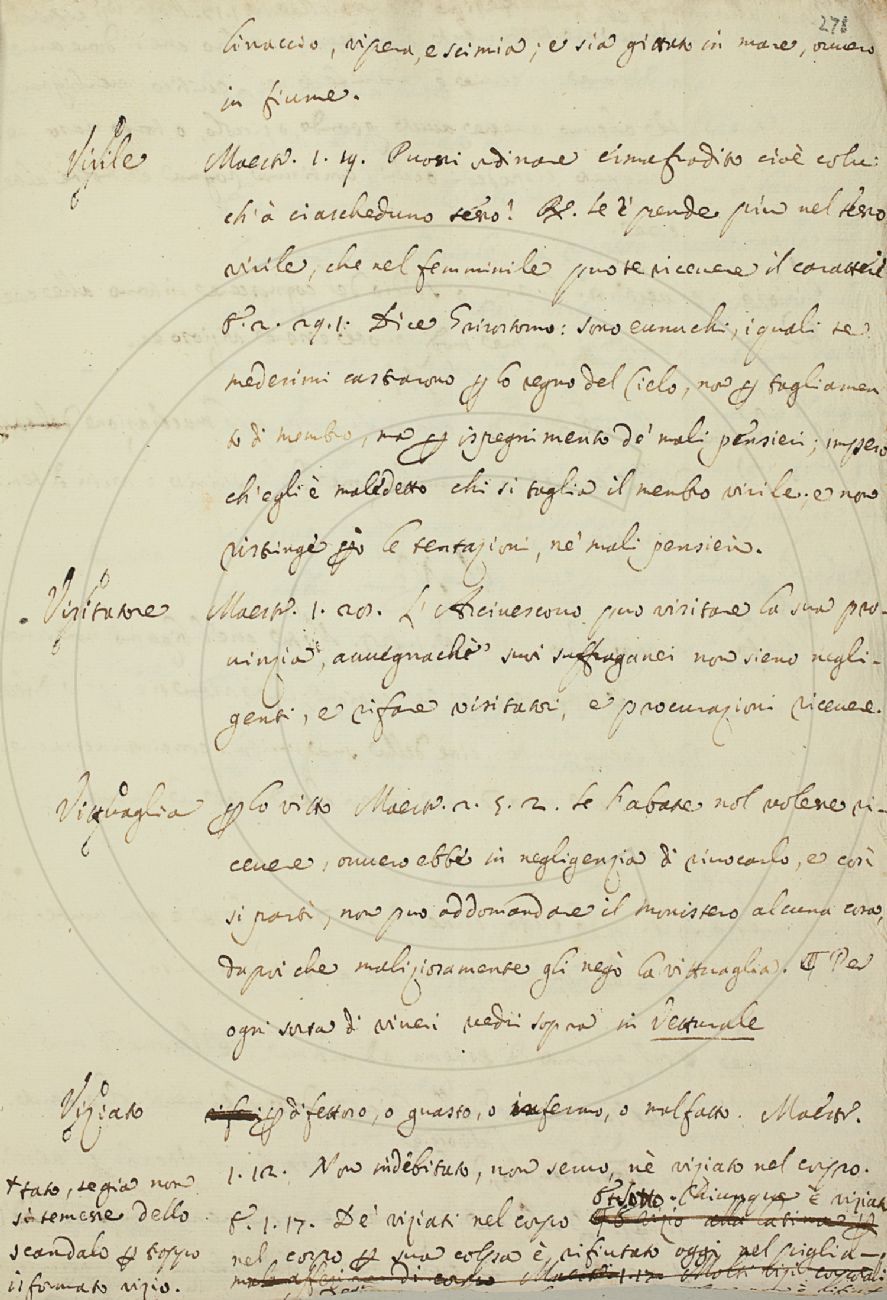 278
linaccio, vipera, e scimia; e sia gittato in mare, ovvero
in fiume.
Virile
Maestr. 1. 19. Puossi ordinare ermafrodito cioè colui
ch'à ciascheduno sesso? R. Se e' pende più nel sesso
virile, che nel femminile puote ricevere il carattere
E. 2. 29. 1. Dice Grisostomo: sono eunuchi, i quali se
medesimi castrarono p lo regno del Cielo, non p tagliamen
to di membro, ma p ispegnimento de' mali pensieri; impero
ch'egli è maledetto chi si taglia il membro virile; e non
ristinge però le tentazioni, nè mali pensieri.
Visitatore
Maestr. 1. 20. L'Arcivescovo può visitare la sua pro-
vinzia, avvegnachè suoi suffraganei non sieno negli-
genti, e rifare visitatori, e procurazioni ricevere.
Vittuaglia
p lo vitto Maestr. 2. 5. 2. Se l'abate nol volesse ri-
cevere, ovvero ebbe in negligenzia di rivocarlo, e così
si partì, non può addomandare il monistero alcuna cosa,
dapoi che maliziosamente gli negò la vittuaglia. ¶ Per
ogni sorta di viveri vedi sopra in Vetturale
Viziato
p difettoso, o guasto, o infermo, o malfatto. Maestr.
1. 12. Non indebitato, non servo, nè viziato nel corpo.
E. di sotto. Chiunque è viziato
E. 1. 17. De' viziati nel corpo
nel corpo p sua colpa è rifiutato oggi nel piglia-
†tato, se già non
si temesse dello
scandalo p troppo
isformato vizio.